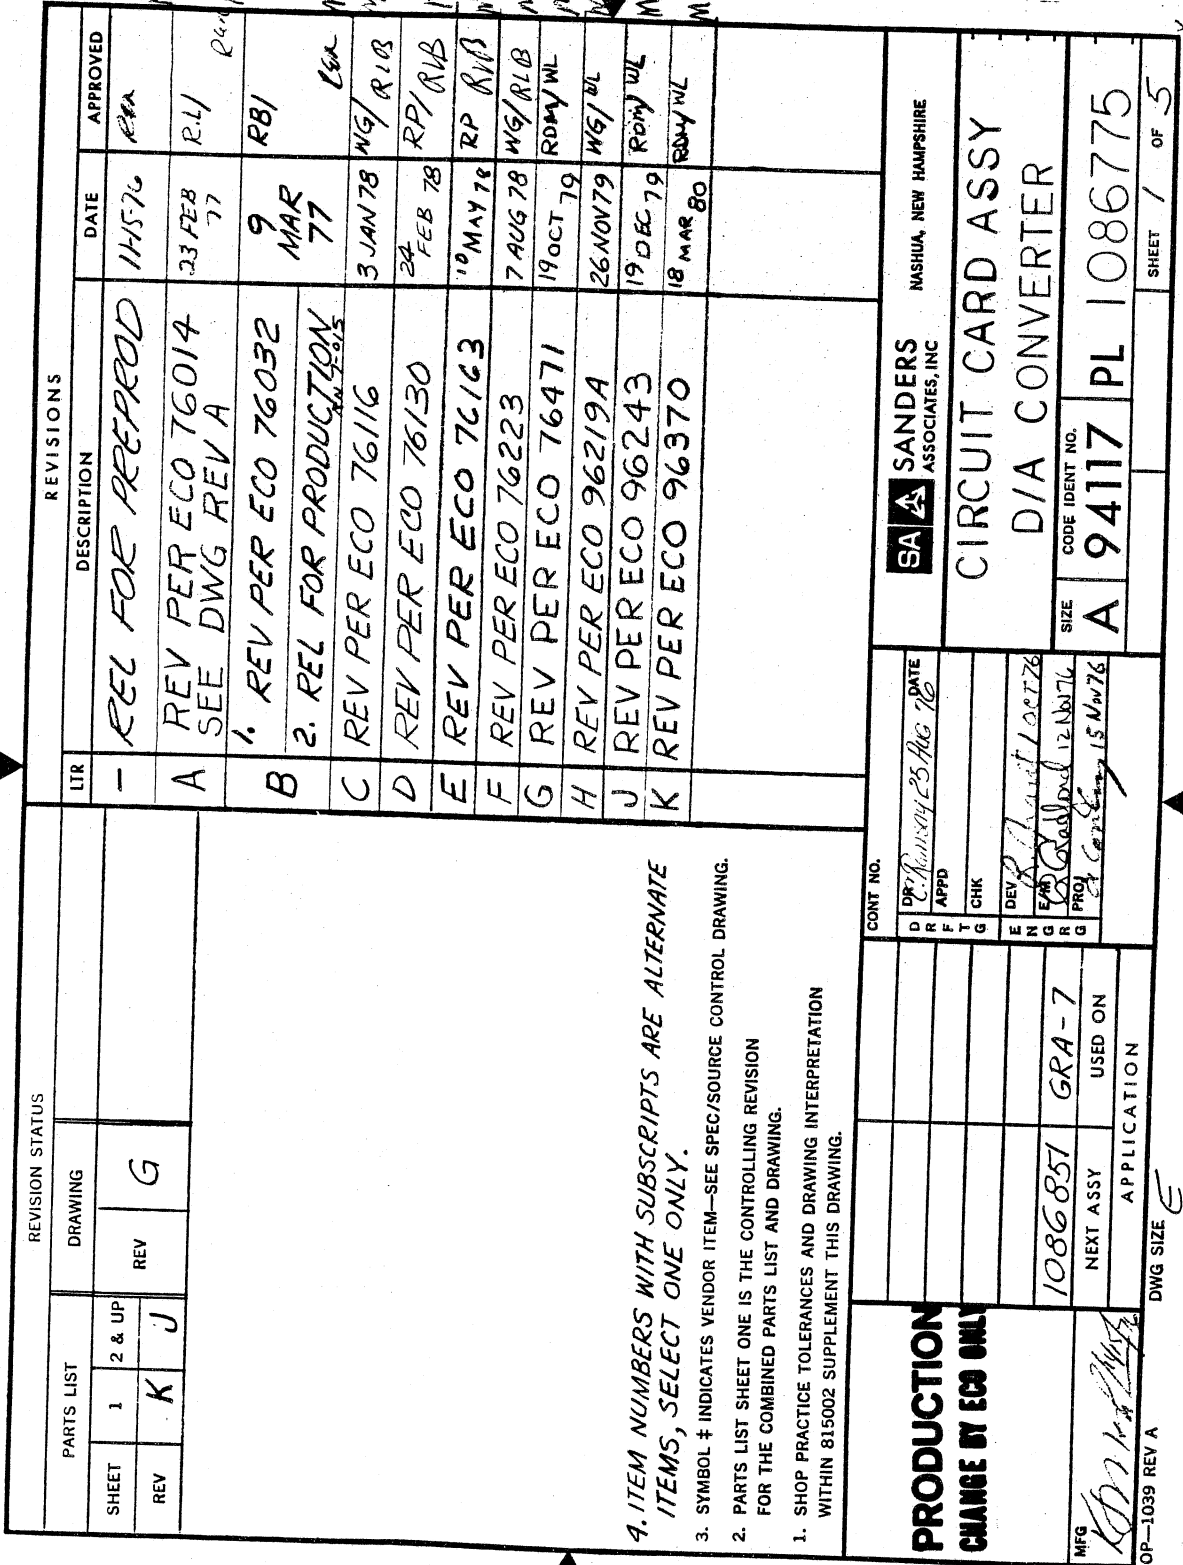 REVISION STATUS
PARTS LIST
DRAWING
SHEET 1 2 & UP
REV K J
REV G
REVISIONS
LTR DESCRIPTION DATE APPROVED
— REL FOR PREPROD 11-15-76
A REV PER ECO 76014 23 FEB 77 R.L/
SEE DWG REV A
B 1. REV PER ECO 76032 9 MAR 77 RB/
2. REL FOR PRODUCTION
C REV PER ECO 76116 3 JAN 78 WG/ RLB
D REV PER ECO 76130 24 FEB 78 RP/ RLB
E REV PER ECO 76163 10 MAY 78 RP RLB
F REV PER ECO 76223 7 AUG 78 WG/ RLB
G REV PER ECO 76471 19 OCT 79 RDM/ WL
H REV PER ECO 96219A 26 NOV 79 WG/ WL
J REV PER ECO 96243 19 DEC 79 RDM/ WL
K REV PER ECO 96370 18 MAR 80 RDM/ WL
4. ITEM NUMBERS WITH SUBSCRIPTS ARE ALTERNATE
ITEMS, SELECT ONE ONLY.
3. SYMBOL ‡ INDICATES VENDOR ITEM—SEE SPEC/SOURCE CONTROL DRAWING.
2. PARTS LIST SHEET ONE IS THE CONTROLLING REVISION
FOR THE COMBINED PARTS LIST AND DRAWING.
1. SHOP PRACTICE TOLERANCES AND DRAWING INTERPRETATION
WITHIN 815002 SUPPLEMENT THIS DRAWING.
PRODUCTION
CHANGE BY ECO ONLY
MFG
1086851 GRA-7
NEXT ASSY USED ON
APPLICATION
CONT NO.
DRFTG
DR 25 AUG 76 DATE
APPD
CHK
ENGRG
DEV 1 OCT 76
E/M 12 Nov 76
PROJ 15 Nov 76
SA SANDERS
ASSOCIATES, INC
NASHUA, NEW HAMPSHIRE
CIRCUIT CARD ASSY
D/A CONVERTER
SIZE A
CODE IDENT NO. 94117
PL 1086775
SHEET 1 OF 5
OP—1039 REV A
DWG SIZE E